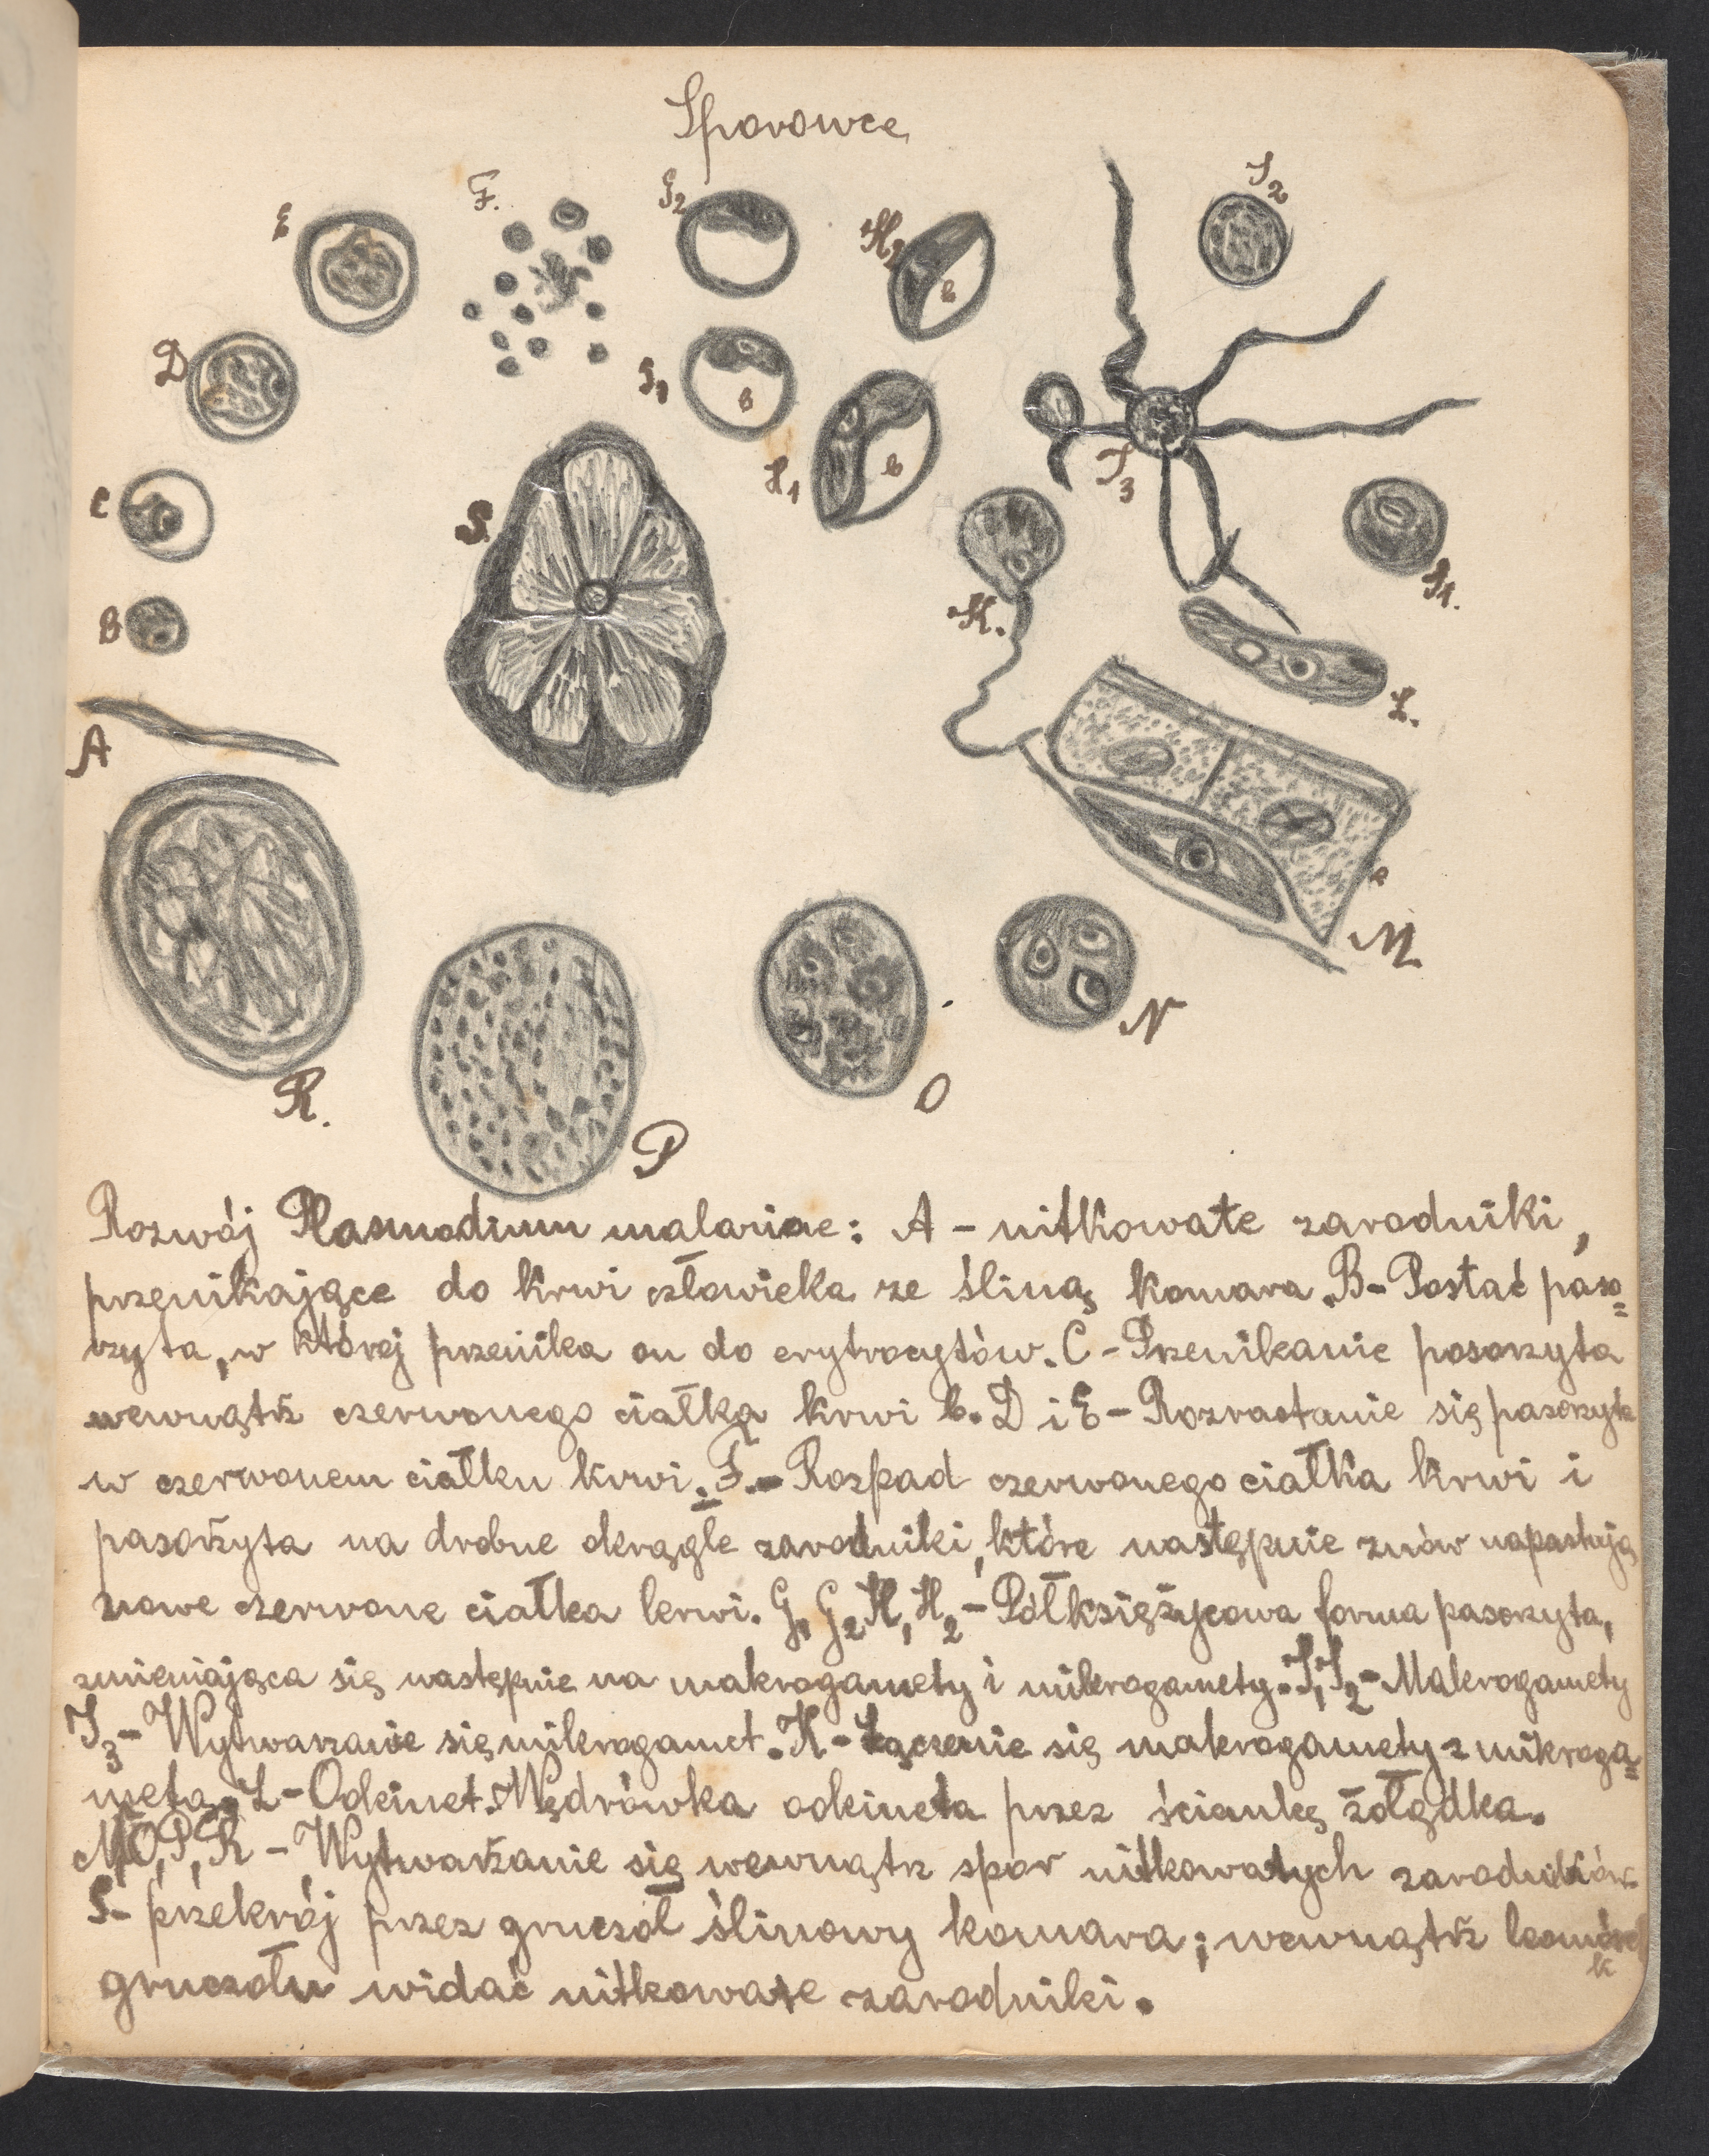 Sporowce
E
F.
G2
H2
J2
b
D
G1
b
H1
b
J3
C
S.
K.
J1.
B
L.
A
e
M
N
R.
O
P
Rozwój Plasmodium malariae: A – nitkowate zarodniki,
przenikające do krwi człowieka ze śliną komara. B– Postać paso=
rzyta, w której przenika on do erytrocytów. C – Przenikanie pasorzyta
wewnątrz czerwonego ciałka krwi b. D i E – Rozrastanie się pasorzyta
w czerwonem ciałku krwi. F.– Rozpad czerwonego ciałka krwi i
pasożyta na drobne okrągłe zarodniki, które następnie znów napastują
nowe czerwone ciałka krwi. G1 G2 H1 H2 – Półksiężycowa forma pasorzyta,
zmieniająca się następnie na makrogamety i mikrogamety. J1 J2 – Makrogamety
J3 – Wytwarzanie się mikrogamet. K – Łączenie się makrogamety z mikroga=
metą. L – Ookinet. Wędrówka ookineta przez ściankę żołądka.
M, O, P, R – Wytwarzanie się wewnątrz spor nitkowatych zarodników.
S– przekrój przez gruczoł ślinowy komara; wewnątrz komórek
k
gruczołu widać nitkowate zarodniki.